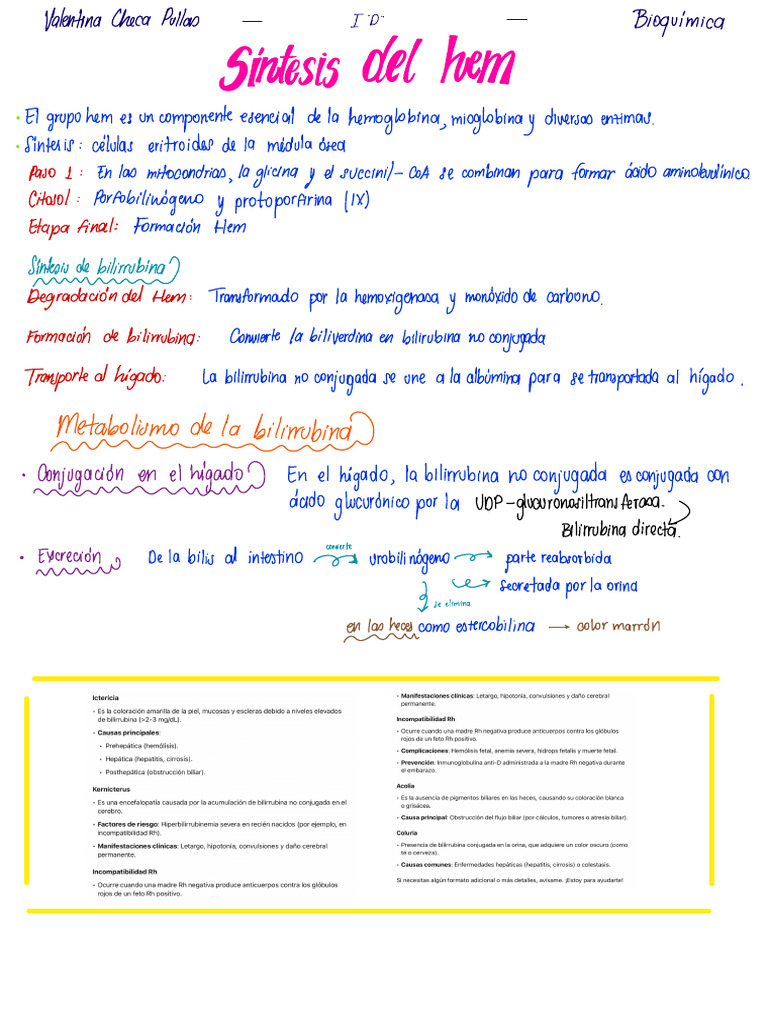 Valentina Checa Pullas — I "D" — Bioquímica
Síntesis del hem
• El grupo hem es un componente esencial de la hemoglobina, mioglobina y diversas enzimas.
• Síntesis: células eritroides de la médula ósea
Paso 1: En las mitocondrias, la glicina y el succinil-CoA se combinan para formar ácido aminolevulínico
Citosol: Porfobilinógeno y protoporfirina (IX)
Etapa final: Formación Hem
Síntesis de bilirrubina
Degradación del Hem: Transformado por la hemoxigenasa y monóxido de carbono.
Formación de bilirrubina: Convierte la biliverdina en bilirubina no conjugada
Transporte al hígado: La bilirrubina no conjugada se une a la albúmina para se transportada al hígado.
Metabolismo de la bilirrubina
• Conjugación en el hígado En el hígado, la bilirrubina no conjugada es conjugada con
ácido glucurónico por la UDP-glucuronosiltransferasa.
Bilirrubina directa.
• Excreción De la bilis al intestino convierte urobilinógeno parte reabsorbida
secretada por la orina
se elimina
en las heces como estercobilina → color marrón
Ictericia
• Es la coloración amarilla de la piel, mucosas y escleras debido a niveles elevados
de bilirrubina (>2-3 mg/dL).
• Causas principales:
• Prehepática (hemólisis).
• Hepática (hepatitis, cirrosis).
• Posthepática (obstrucción biliar).
Kernicterus
• Es una encefalopatía causada por la acumulación de bilirrubina no conjugada en el
cerebro.
• Factores de riesgo: Hiperbilirrubinemia severa en recién nacidos (por ejemplo, en
incompatibilidad Rh).
• Manifestaciones clínicas: Letargo, hipotonía, convulsiones y daño cerebral
permanente.
Incompatibilidad Rh
• Ocurre cuando una madre Rh negativa produce anticuerpos contra los glóbulos
rojos de un feto Rh positivo.
• Manifestaciones clínicas: Letargo, hipotonía, convulsiones y daño cerebral
permanente.
Incompatibilidad Rh
• Ocurre cuando una madre Rh negativa produce anticuerpos contra los glóbulos
rojos de un feto Rh positivo.
• Complicaciones: Hemólisis fetal, anemia severa, hidrops fetalis y muerte fetal.
• Prevención: Inmunoglobulina anti-D administrada a la madre Rh negativa durante
el embarazo.
Acolia
• Es la ausencia de pigmentos biliares en las heces, causando su coloración blanca
o grisácea.
• Causa principal: Obstrucción del flujo biliar (por cálculos, tumores o atresia biliar).
Coluria
• Presencia de bilirrubina conjugada en la orina, que adquiere un color oscuro (como
té o cerveza).
• Causas comunes: Enfermedades hepáticas (hepatitis, cirrosis) o colestasis.
Si necesitas algún formato adicional o más detalles, avísame. ¡Estoy para ayudarte!